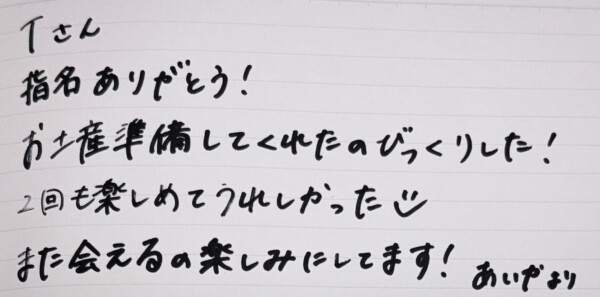 Tさん
指名ありがとう!
お土産準備してくれたのびっくりした!
2回も楽しめてうれしかった
また会えるの楽しみにしてます!
あいかより